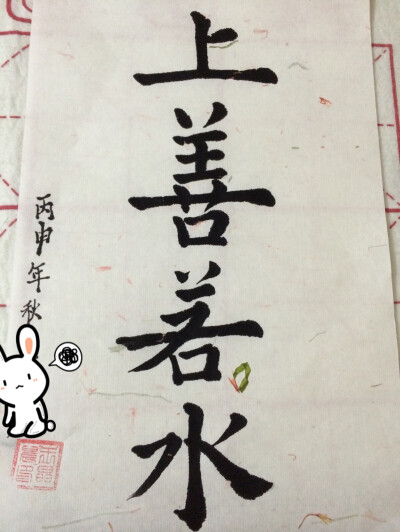 上善若水
丙申年秋